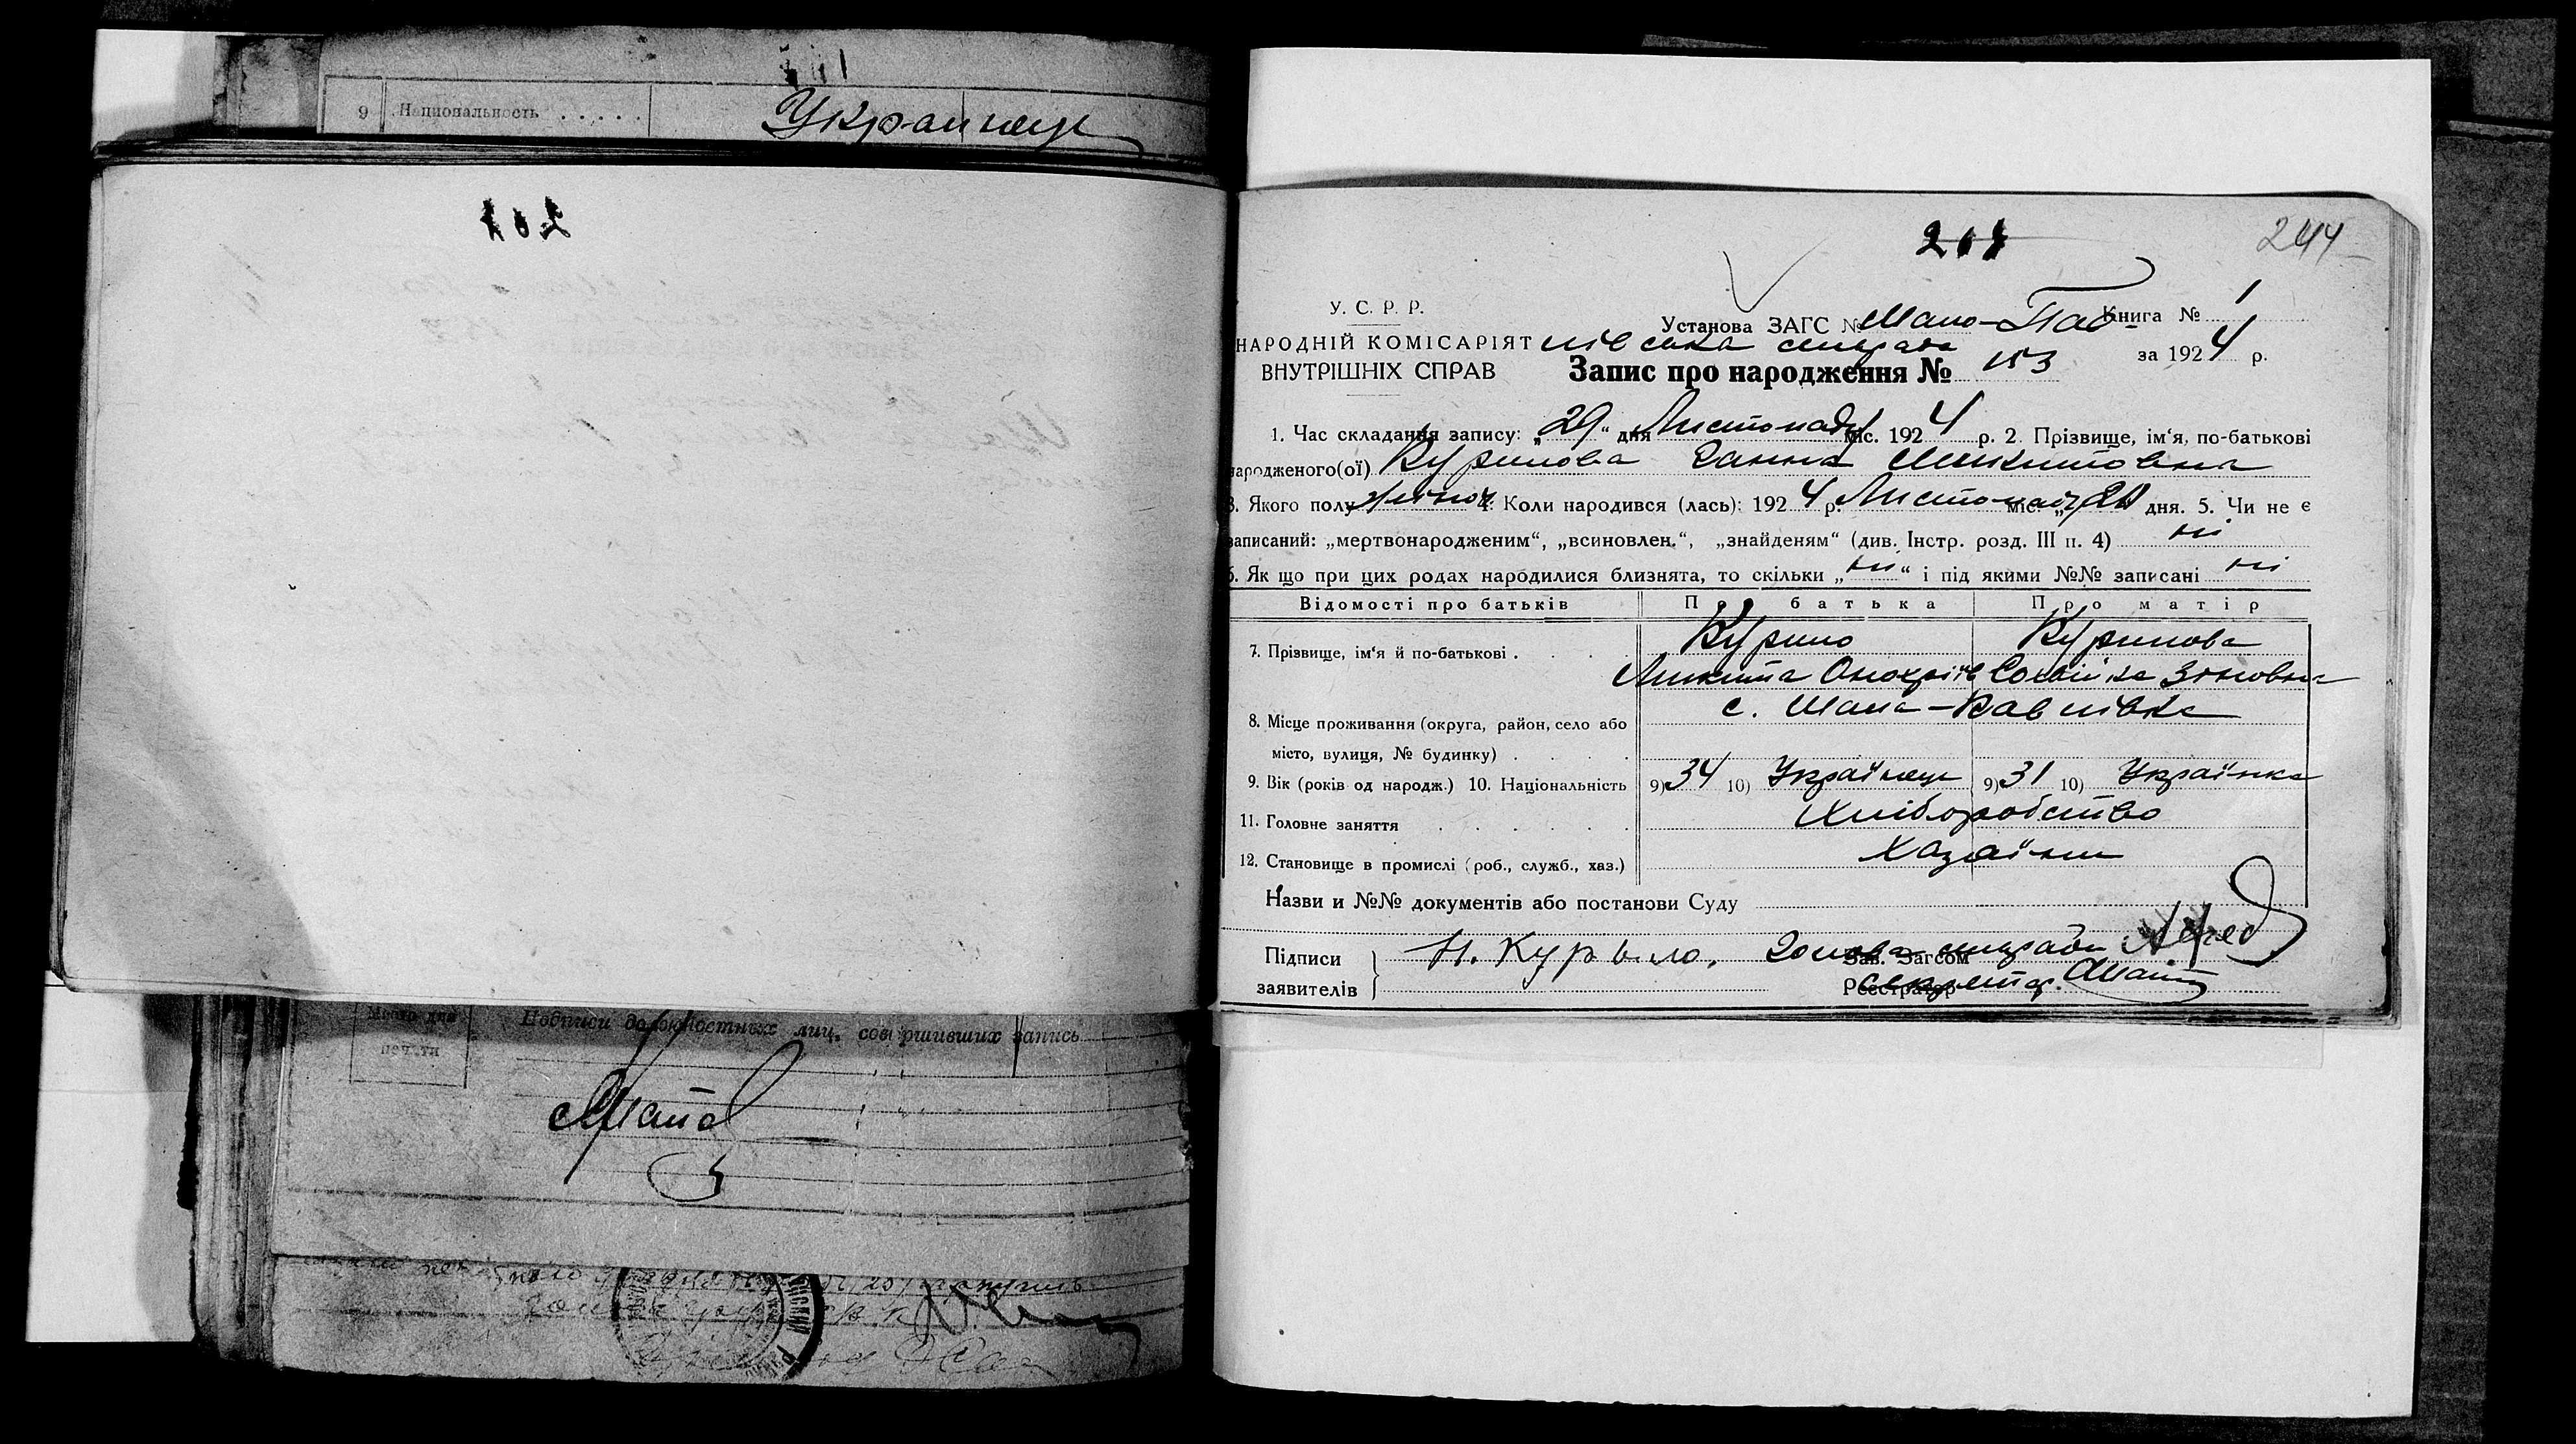 9 Национальность . . . . .
Украинец
201
201
244
У. С. Р. Р.
НАРОДНІЙ КОМІСАРІЯТ
ВНУТРІШНІХ СПРАВ
Установа ЗАГС № Мало-Пав-
лівська сільрада
Книга № 1
за 1924 р.
Запис про народження № 153
1. Час складання запису: „29“ дня Листопаду міс. 1924 р. 2. Прізвище, ім'я, по-батькові
народженого(ої) Курилова Ганна Микитовна
3. Якого полу жіноч. 4. Коли народився (лась): 1924 р. Листопаду міс. „ дня. 5. Чи не є
записаний: „мертвонародженим“, „всиновлен.“, „знайденям“ (див. Інстр. розд. III п. 4) ні
6. Як що при цих родах народилися близнята, то скільки „ні“ і під якими №№ записані ні
Відомості про батьків Про батька Про матір
7. Прізвище, ім'я й по-батькові . Курило Курилова
Микита Зіновна
8. Місце проживання (округа, район, село або с. Мала-Павлівка
місто, вулиця, № будинку) . . . .
9. Вік (років од народж.) 10. Національність 9) 34 10) Українець 9) 31 10) Українка
11. Головне заняття . . . . . . Хліборобство
12. Становище в промислі (роб., служб., хаз.) Хазяїни
Назви и №№ документів або постанови Суду
Підписи Н. Курыло. Зав. Загсом Голова сільради
заявителів Реєстратор Секретар.
Место для
печати
Подписи должностных лиц, совершивших запись